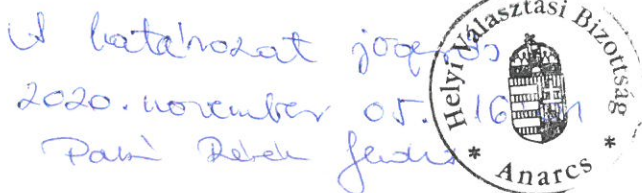 A határozat jogerős
2020. november 05. 16
Helyi Választási Bizottság
* Anarcs *